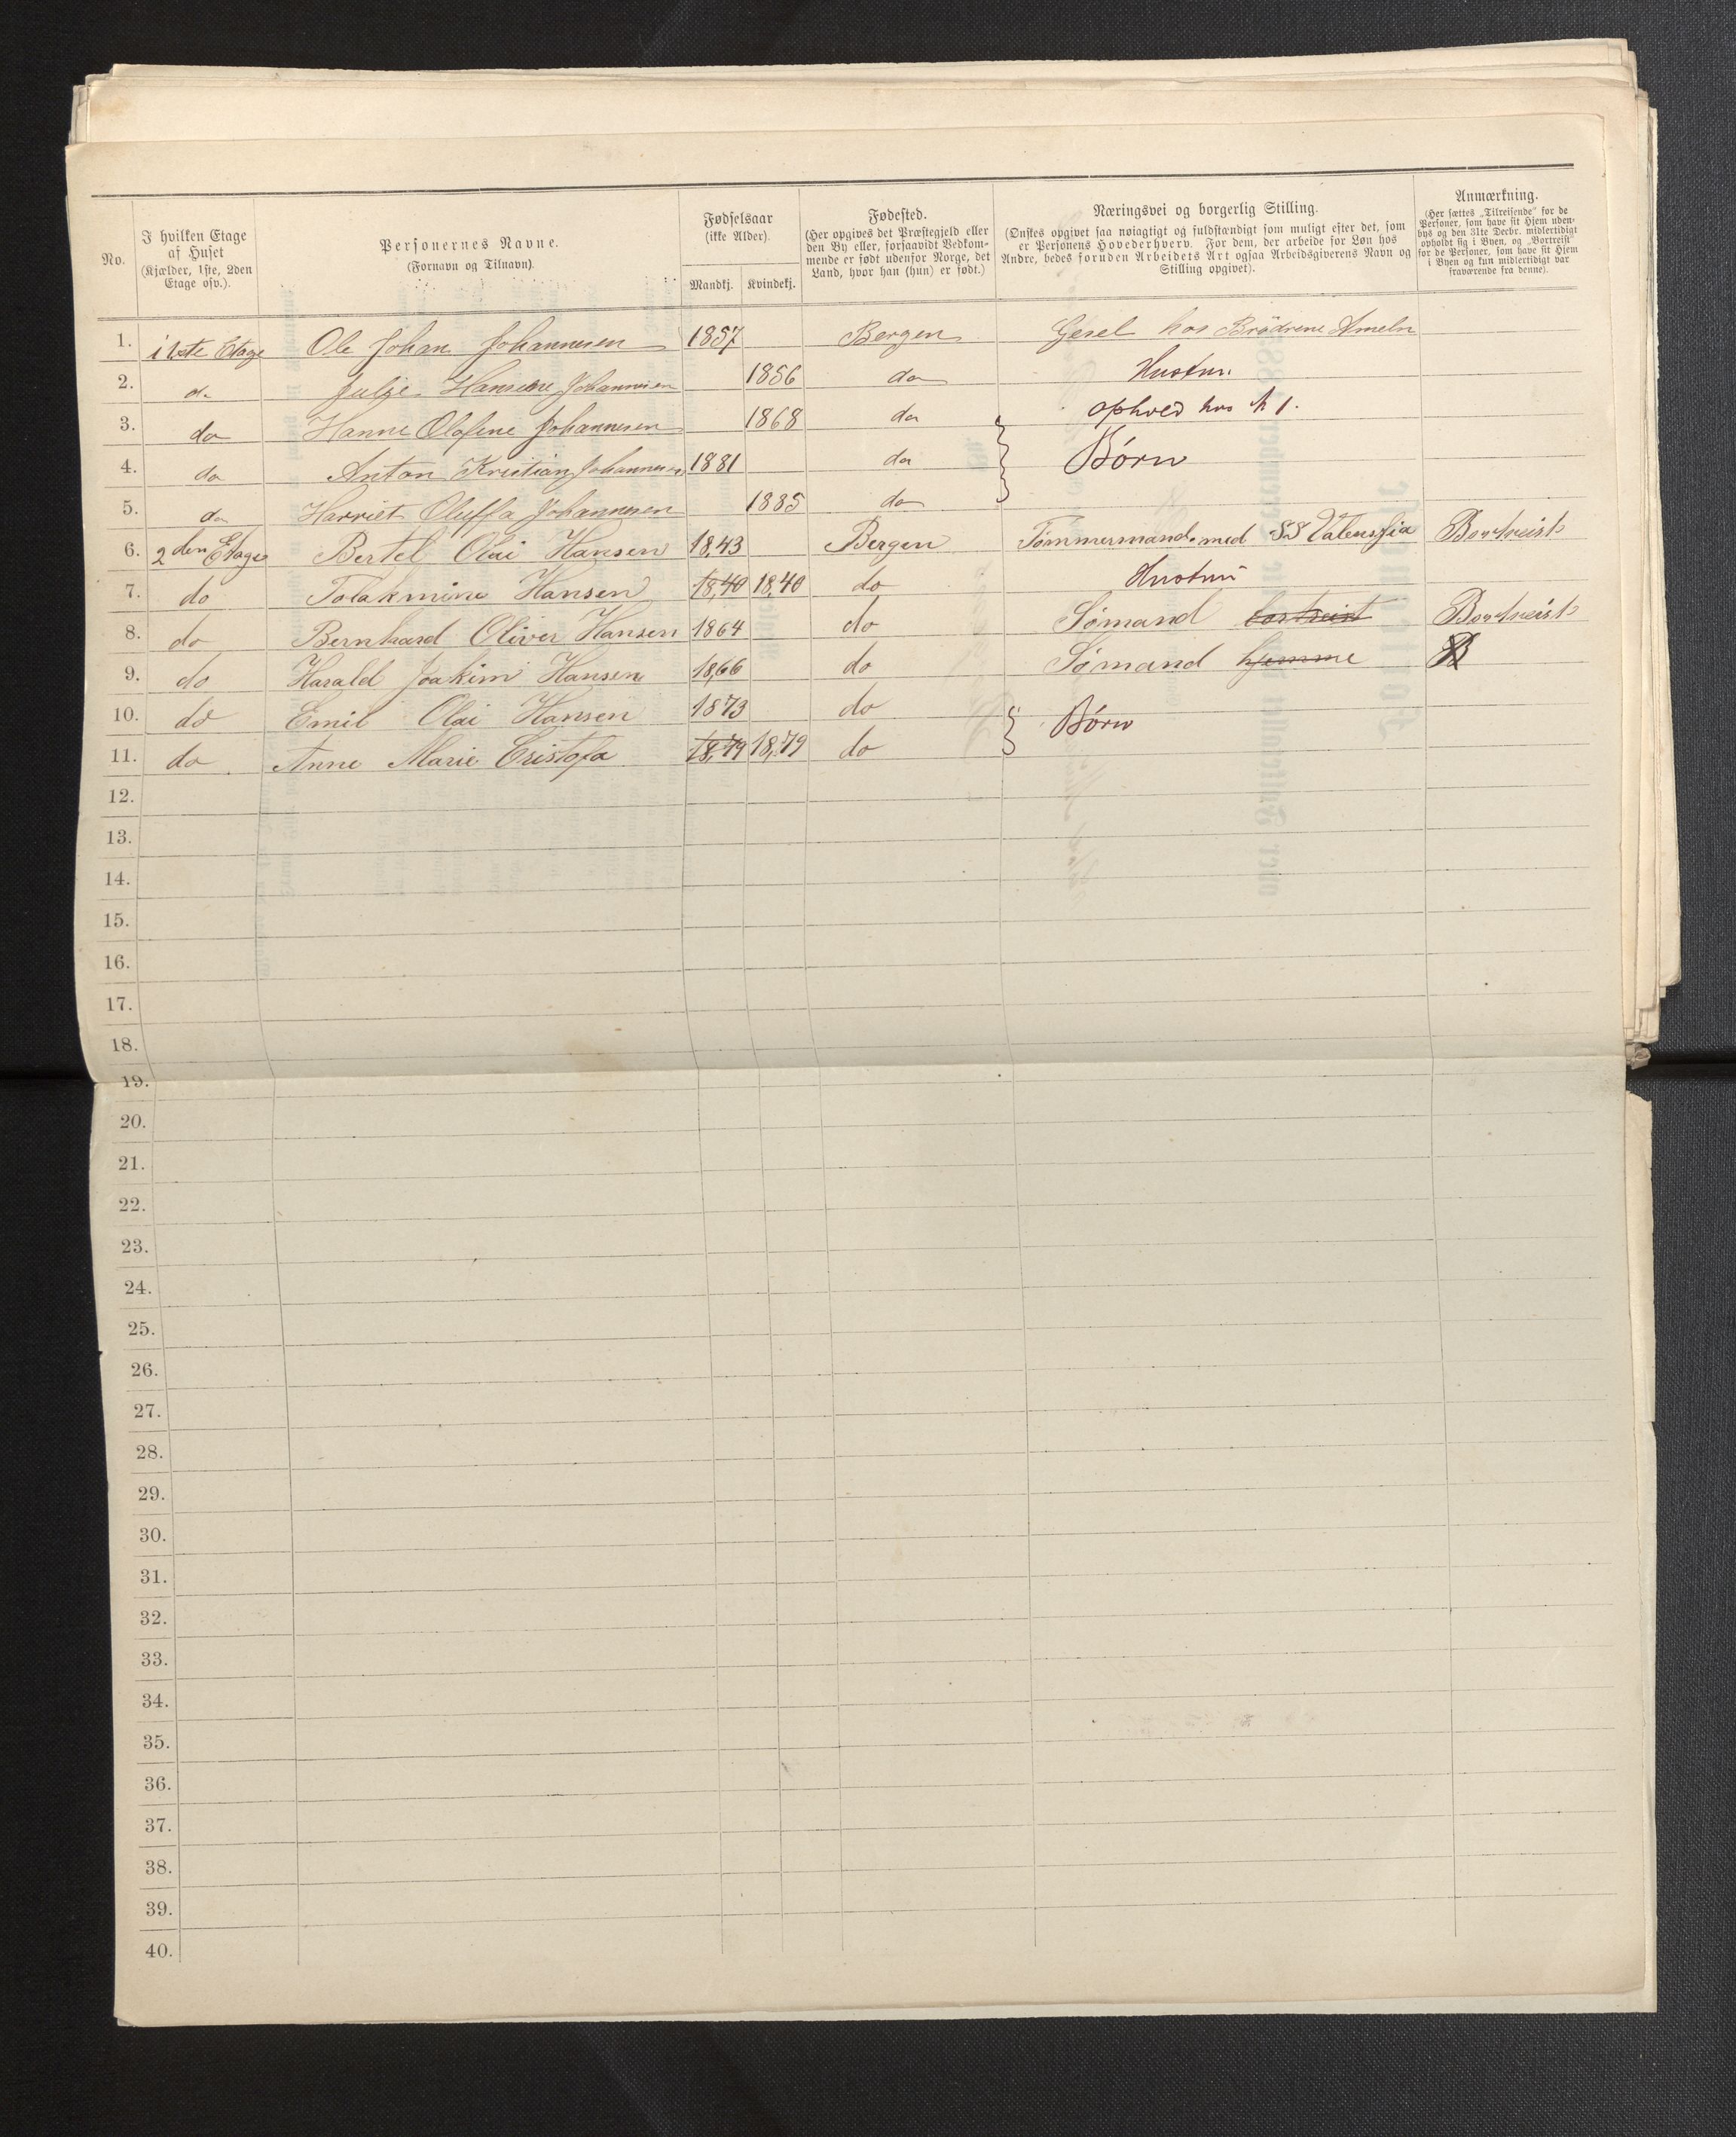 No.
I hvilken Etage
af Huset
(Kjælder, 1ste, 2den
Etage osv.).
Personernes Navne.
(Fornavn og Tilnavn).
Fødselsaar
(ikke Alder).
Mandkj. Kvindekj.
Fødested.
(Her opgives det Præstegjeld eller
den By eller, forsaavidt Vedkom-
mende er født udenfor Norge, det
Land, hvor han (hun) er født.)
Næringsvei og borgerlig Stilling.
(Ønskes opgivet saa nøiagtigt og fuldstændigt som muligt efter det, som
er Personens Hovederhverv. For dem, der arbeide for Løn hos
Andre, bedes foruden Arbeidets Art ogsaa Arbeidsgiverens Navn og
Stilling opgivet).
Anmærkning.
(Her sættes „Tilreisende“ for de
Personer, som have sit Hjem uden-
bys og den 31te Decbr. midlertidigt
opholdt sig i Byen, og „Bortreist“
for de Personer, som have sit Hjem
i Byen og kun midlertidigt var
fraværende fra denne).
1. i 1ste Etage Ole Johan Johannesen 1857 Bergen Gesel hos Brödrene Ameln
2. do Julje Hansene Johannesen 1856 do Hustru
3. do Hanne Olafine Johannesen 1868 do ophold hos № 1.
4. do Anton Kristian Johannesen 1881 do Børn
5. do Harriet Oluffa Johannesen 1885 do
6. 2den Etage Bertel Olai Hansen 1843 Bergen Tømmermand med SS Valenssia Bortreist
7. do Tolakmine Hansen 1840 1840 do Hustru
8. do Bernhard Oliver Hansen 1864 do Sømand bortreist Bortreist
9. do Harald Joakim Hansen 1866 do Sømand hjemme B
10. do Emil Olai Hansen 1873 do Børn
11. do Anne Marie Cristofa 1879 1879 do
12.
13.
14.
15.
16.
17.
18.
19.
20.
21.
22.
23.
24.
25.
26.
27.
28.
29.
30.
31.
32.
33.
34.
35.
36.
37.
38.
39.
40.